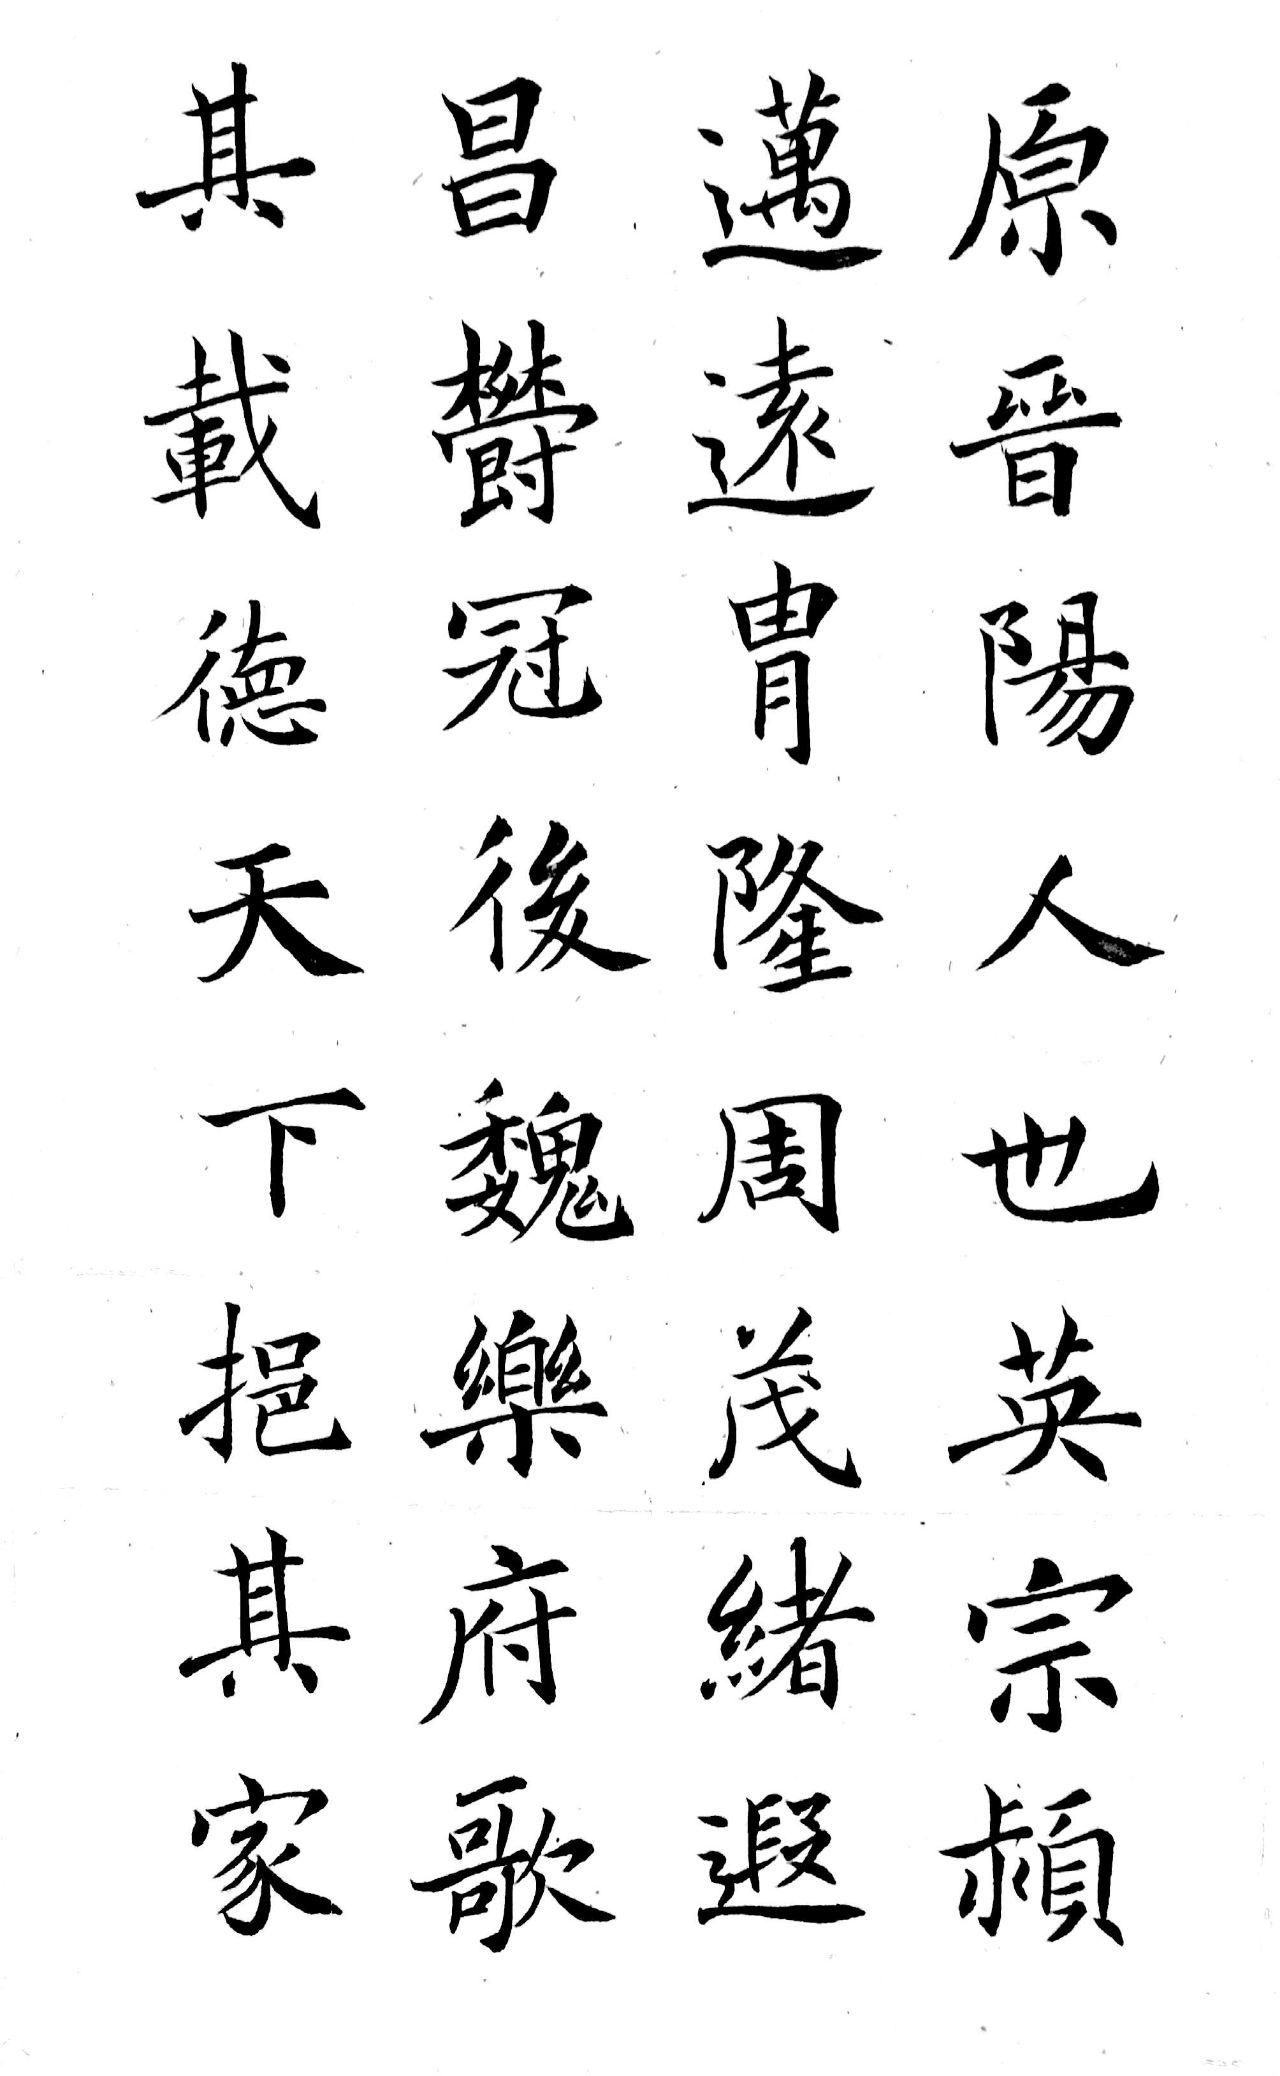 原晉陽人也英宗頴
邁遠胄隆周茂緒遐
昌欝冠後魏樂府歌
其載徳天下挹其家